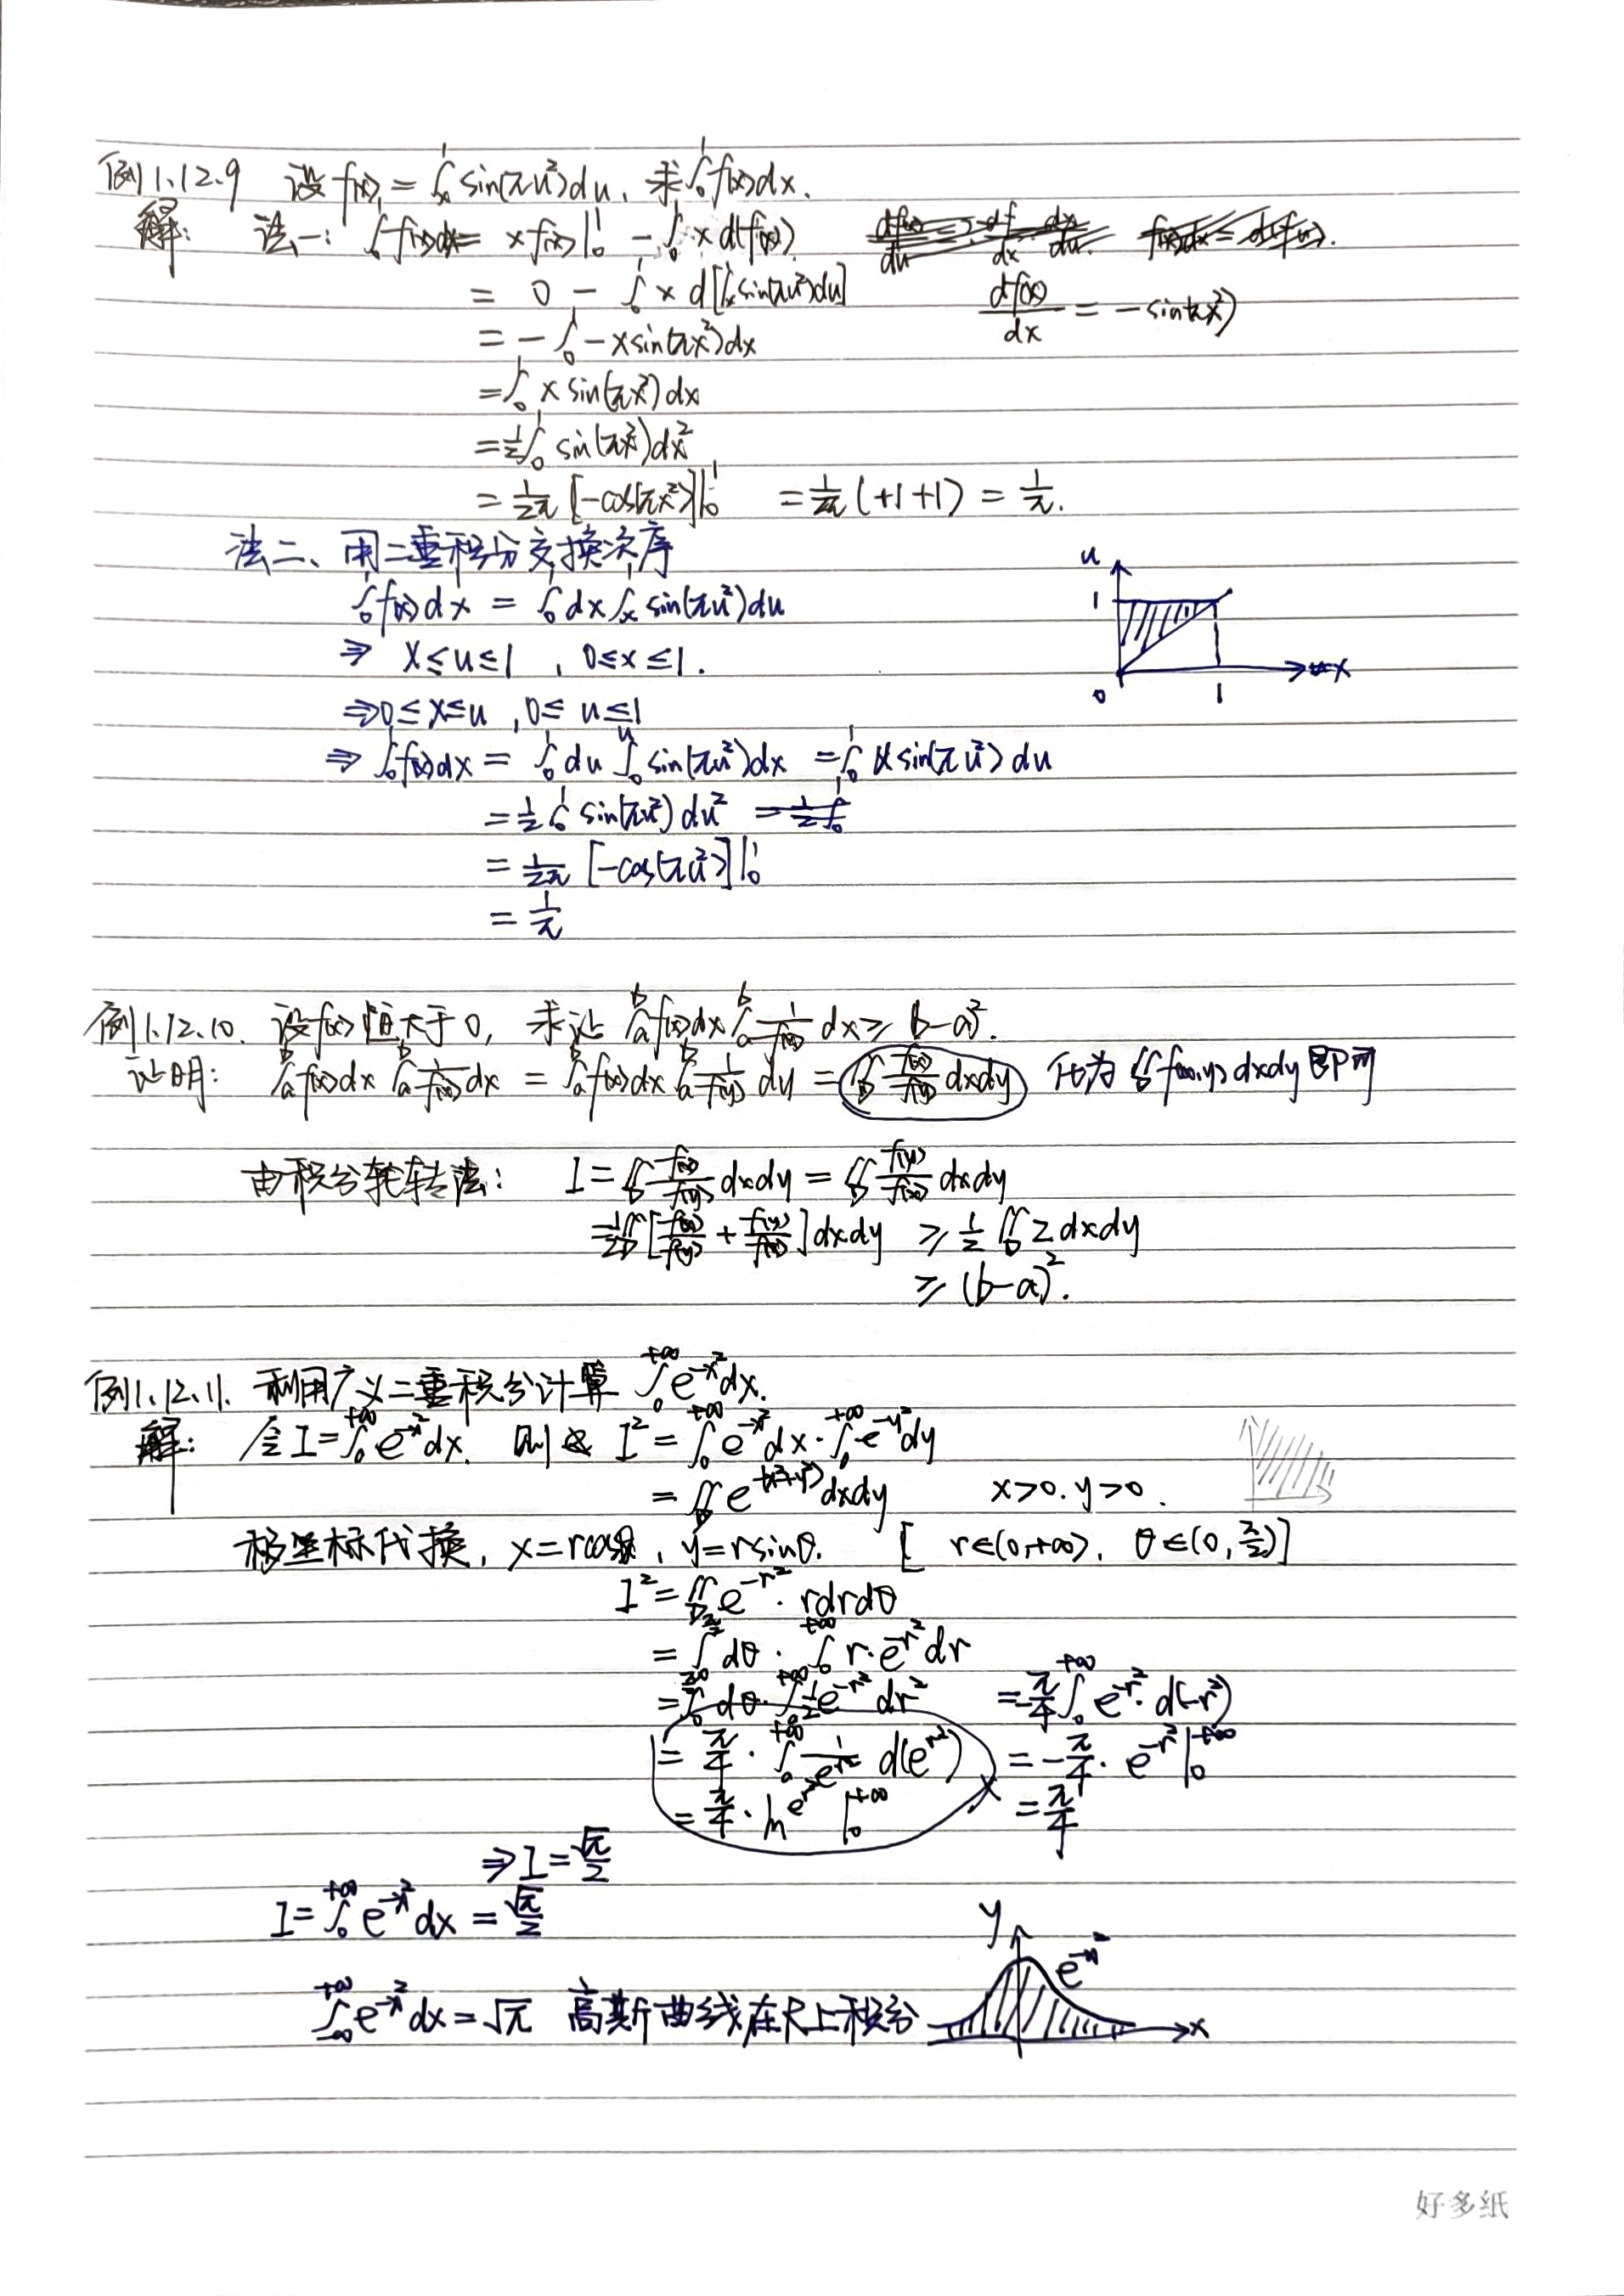 例1.12.9 设f(x)=∫ₓ¹sin(πu²)du, 求∫₀¹f(x)dx.
解: 法一: ∫₀¹f(x)dx = xf(x)|₀¹ - ∫₀¹xd(f(x))
= 0 - ∫₀¹ x d[∫ₓ¹sin(πu²)du] df(x)/dx = -sin(πx²)
= -∫₀¹ -xsin(πx²)dx
= ∫₀¹ x sin(πx²)dx
= 1/2 ∫₀¹ sin(πx²)dx²
= 1/2π [-cos(πx²)]|₀¹ = 1/2π (+1+1) = 1/π.
法二、用二重积分交换次序
∫₀¹f(x)dx = ∫₀¹dx∫ₓ¹sin(πu²)du
⇒ x≤u≤1, 0≤x≤1.
⇒ 0≤x≤u, 0≤u≤1
⇒ ∫₀¹f(x)dx = ∫₀¹du∫₀ᵘsin(πu²)dx = ∫₀¹usin(πu²)du
= 1/2 ∫₀¹ sin(πu²)du²
= 1/2π [-cos(πu²)]|₀¹
= 1/π
u
1
0 1 x
例1.12.10. 设f(x)恒大于0, 求证 ∫ₐᵇf(x)dx∫ₐᵇ1/f(x) dx ≥ (b-a)².
证明: ∫ₐᵇf(x)dx∫ₐᵇ1/f(x) dx = ∫ₐᵇf(x)dx∫ₐᵇ1/f(y) dy = ∬_D f(x)/f(y) dxdy 化为∬_D f(x,y)dxdy即可
由积分轮转法: I = ∬_D f(x)/f(y) dxdy = ∬_D f(y)/f(x) dxdy
= 1/2 ∬_D [f(x)/f(y) + f(y)/f(x)]dxdy ≥ 1/2 ∬_D 2dxdy
≥ (b-a)².
例1.12.11. 利用广义二重积分计算 ∫₀^{+∞} e^{-x²}dx.
解: 令I=∫₀^{+∞} e^{-x²}dx. 则 I² = ∫₀^{+∞} e^{-x²}dx · ∫₀^{+∞} e^{-y²}dy
= ∬_D e^{-(x²+y²)}dxdy x>0. y>0.
极坐标代换, x=rcosθ, y=rsinθ. [ r∈(0,+∞), θ∈(0, π/2)]
I² = ∬_D e^{-r²} · rdrdθ
= ∫₀^{π/2} dθ · ∫₀^{+∞} r·e^{-r²}dr
= ∫₀^{π/2} dθ · ∫₀^{+∞} 1/2 e^{-r²} dr² = -π/4 ∫₀^{+∞} e^{-r²}·d(-r²)
= π/4 · ∫₀^{+∞} 1/e^{r²} d(e^{r²}) × = -π/4 · e^{-r²}|₀^{+∞}
= π/4 · ln e^{r²} |₀^{+∞} = π/4
⇒ I = √π/2
I = ∫₀^{+∞} e^{-x²}dx = √π/2
y
e^{-x²}
∫_{-∞}^{+∞} e^{-x²}dx = √π 高斯曲线在R上积分 x
好多纸